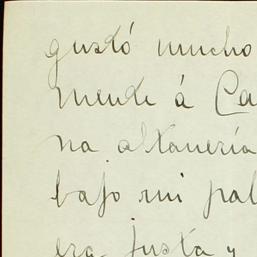 gustó mucho
mente á Ca
na altanería
bajo mi pal
era justa y